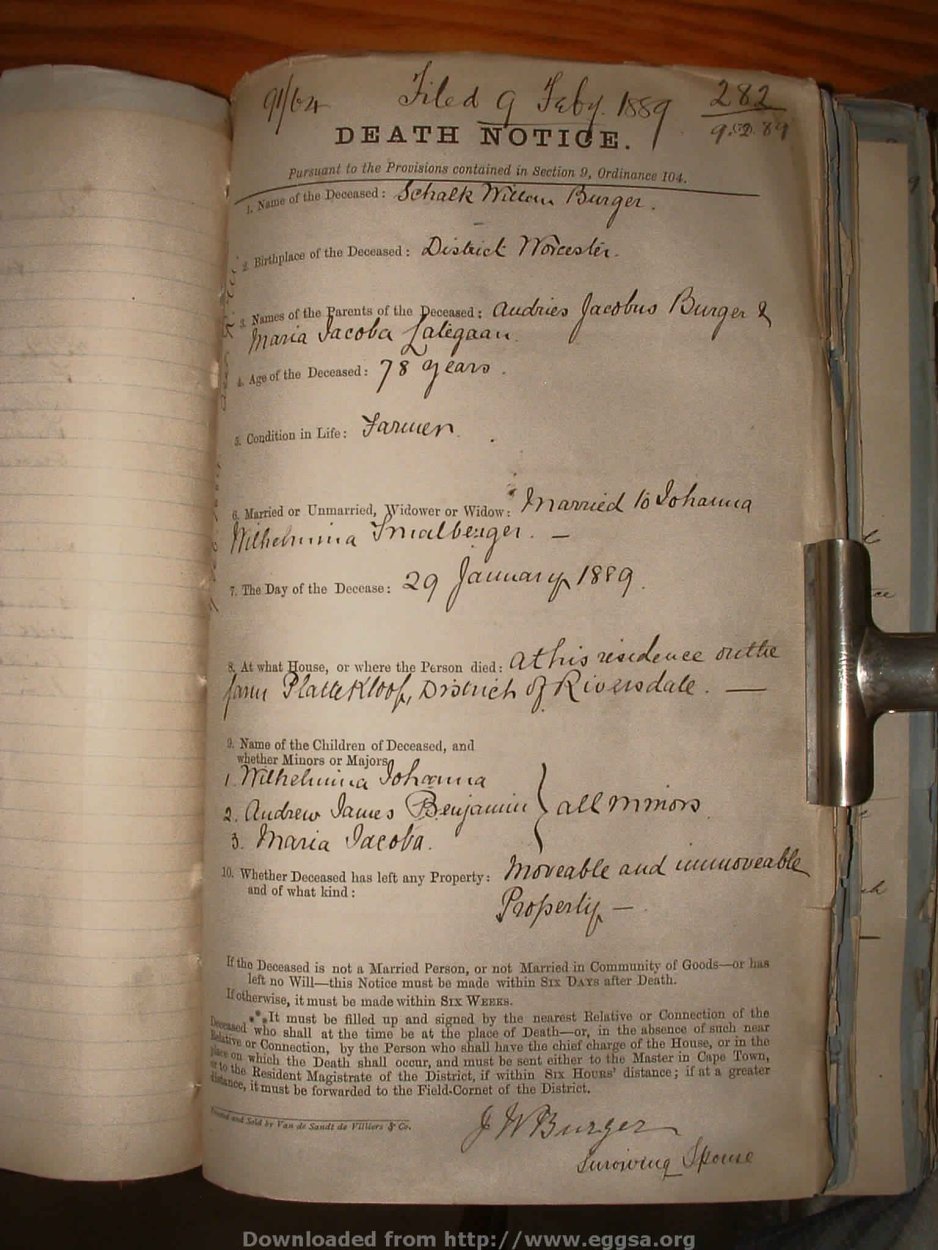 91/64 Filed 9 Feby. 1889 282
9.2.89
DEATH NOTICE.
Pursuant to the Provisions contained in Section 9, Ordinance 104.
1. Name of the Deceased: Schalk Willem Burger.
2. Birthplace of the Deceased: District Worcester.
3. Names of the Parents of the Deceased: Andries Jacobus Burger &
Maria Jacoba Lategaan.
4. Age of the Deceased: 78 years.
5. Condition in Life: Farmer.
6. Married or Unmarried, Widower or Widow: Married to Johanna
Wilhelmina Smalberger. —
7. The Day of the Decease: 29 January 1889.
8. At what House, or where the Person died: at his residence on the
farm Platte Kloof, District of Riversdale. —
9. Name of the Children of Deceased, and
whether Minors or Majors
1. Wilhelmina Johanna
2. Andrew James Benjamin } all minors
3. Maria Jacoba.
10. Whether Deceased has left any Property: Moveable and immoveable
and of what kind: Property —
If the Deceased is not a Married Person, or not Married in Community of Goods—or has
left no Will—this Notice must be made within Six Days after Death.
If otherwise, it must be made within Six Weeks.
*** It must be filled up and signed by the nearest Relative or Connection of the
Deceased who shall at the time be at the place of Death—or, in the absence of such near
Relative or Connection, by the Person who shall have the chief charge of the House, or in the
place on which the Death shall occur, and must be sent either to the Master in Cape Town,
or to the Resident Magistrate of the District, if within Six Hours' distance; if at a greater
distance, it must be forwarded to the Field-Cornet of the District.
Printed and Sold by Van de Sandt de Villiers & Co.
J W Burger
Surviving Spouse
Downloaded from http://www.eggsa.org